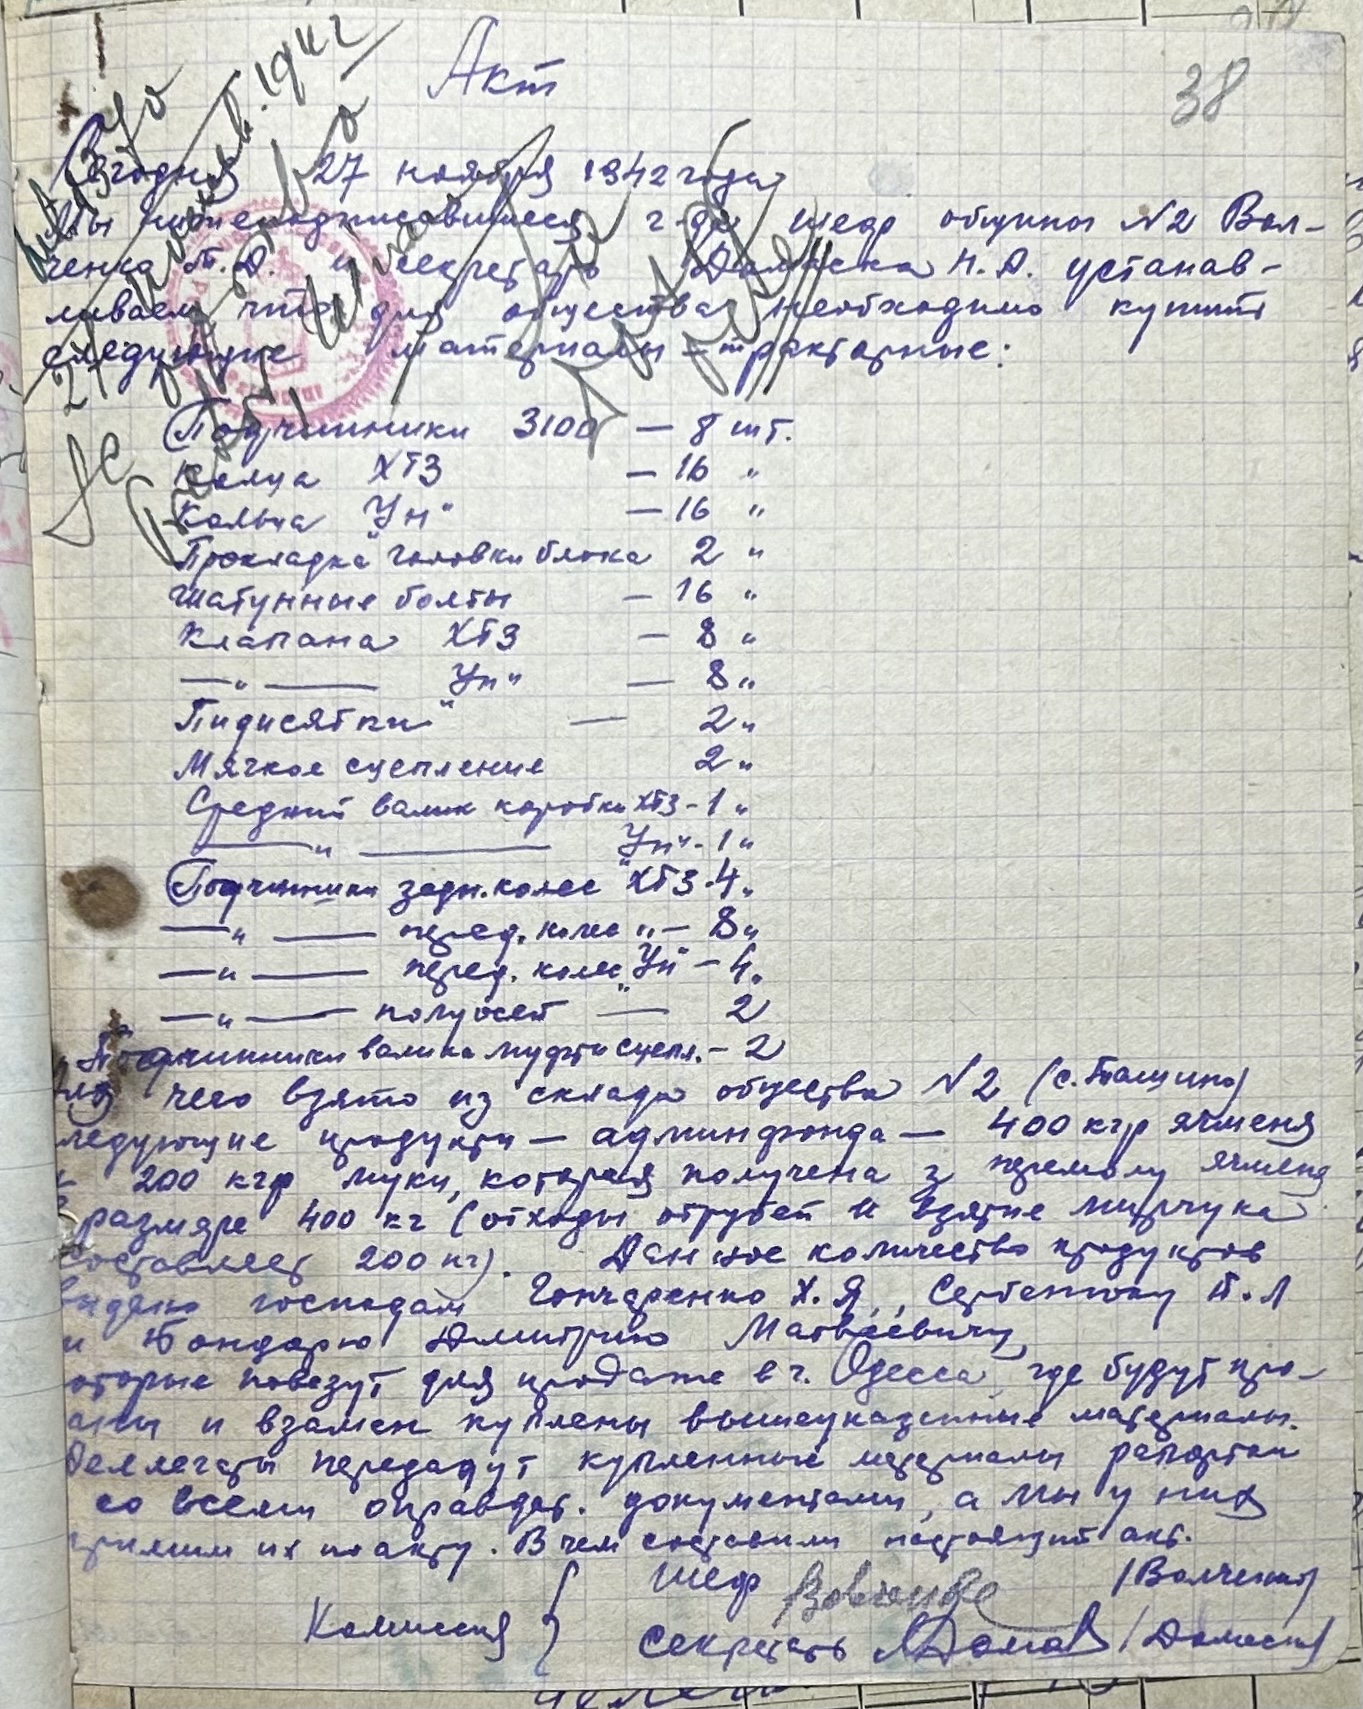 Акт
38
Сегодня 27 ноября 1942 года
Мы нижеподписавшиеся г-да шеф общины №2 Вол-
ченко Т.Д. и секретарь Н.А. устанав-
ливаем что для общества необходимо купить
следующие материалы - тракторные:
Подчипники 3100 — 8 шт.
Кольца ХТЗ — 16 "
Кольца "Ун" — 16 "
Прокладка головки блока 2 "
Шатунные болты — 16 "
Клапана ХТЗ — 8 "
—"— "Ун" — 8 "
Пидисятки — 2 "
Мягкое сцепление 2 "
Средний валик коробки ХТЗ - 1 "
—"— "Ун" - 1 "
Подчипники задн. колес ХТЗ - 4 "
—"— перед. колес " — 8 "
—"— перед. колес "Ун" - 4 "
—"— полуосей — 2
Подчипники валика муфты сцепл. - 2
Для чего взято из склада общества №2
ледующие продукты — админфонда — 400 кгр ячменя
200 кгр муки, которая получена з перемолу ячменя
размере 400 кг (отходы отрубей и взятие мирчука
составляет 200 кг). Данное количество продуктов
выдано господам Гончаренко Х.Я., П.Л
и Бондарю Дмитрию Матвеевичу
оторые повезут для продажи в г. Одесса, где будут про-
аны и взамен куплены вышеуказанные материалы.
Деллегаты передадут купленные материалы
со всеми оправдат. документами, а мы у них
примим их по акту. В чем составили настоящий акт.
Комиссия { Шеф /Волченко/
Секретарь